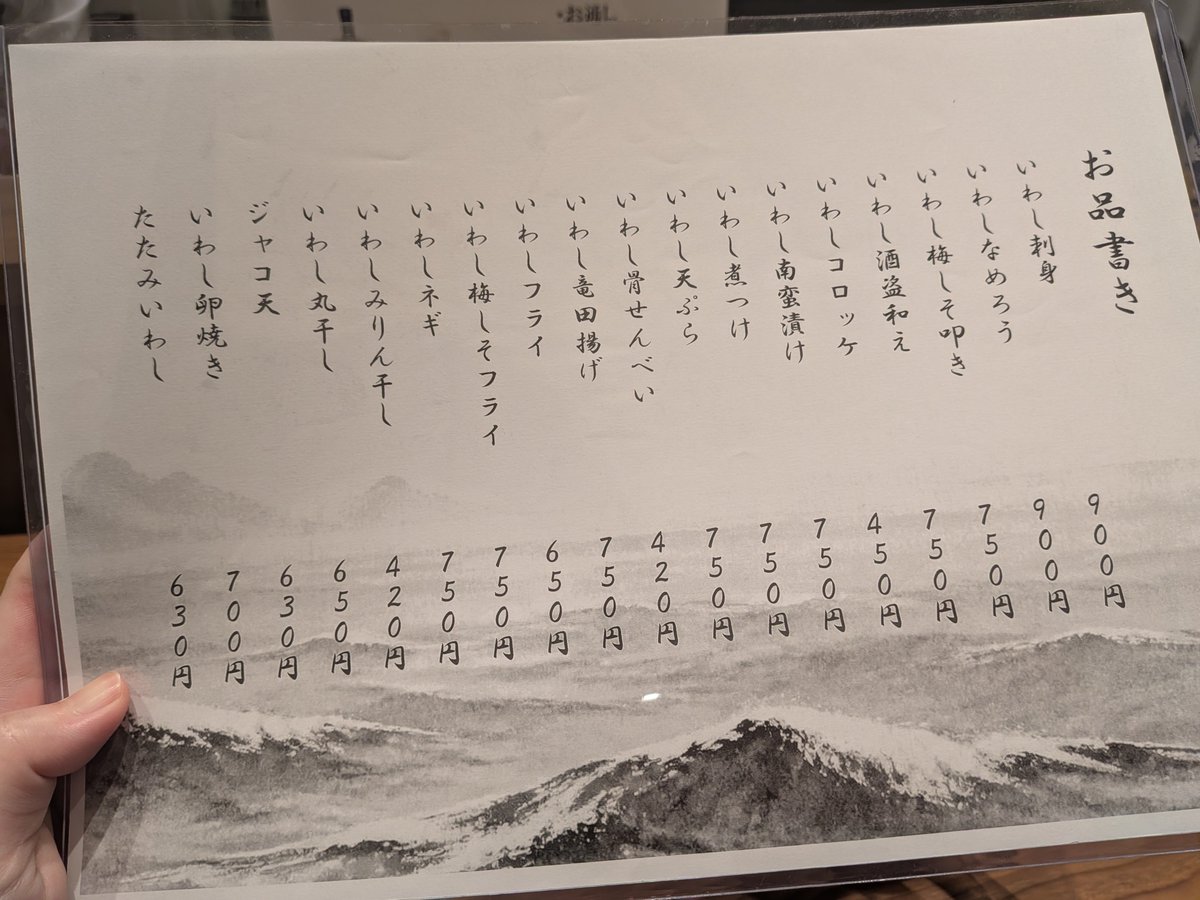 ・お通し
お品書き
いわし刺身 900円
いわしなめろう 900円
いわし梅しそ叩き 750円
いわし酒盗和え 750円
いわしコロッケ 450円
いわし南蛮漬け 750円
いわし煮つけ 750円
いわし天ぷら 750円
いわし骨せんべい 420円
いわし竜田揚げ 750円
いわしフライ 650円
いわし梅しそフライ 750円
いわしネギ 750円
いわしみりん干し 420円
いわし丸干し 650円
ジャコ天 630円
いわし卵焼き 700円
たたみいわし 630円